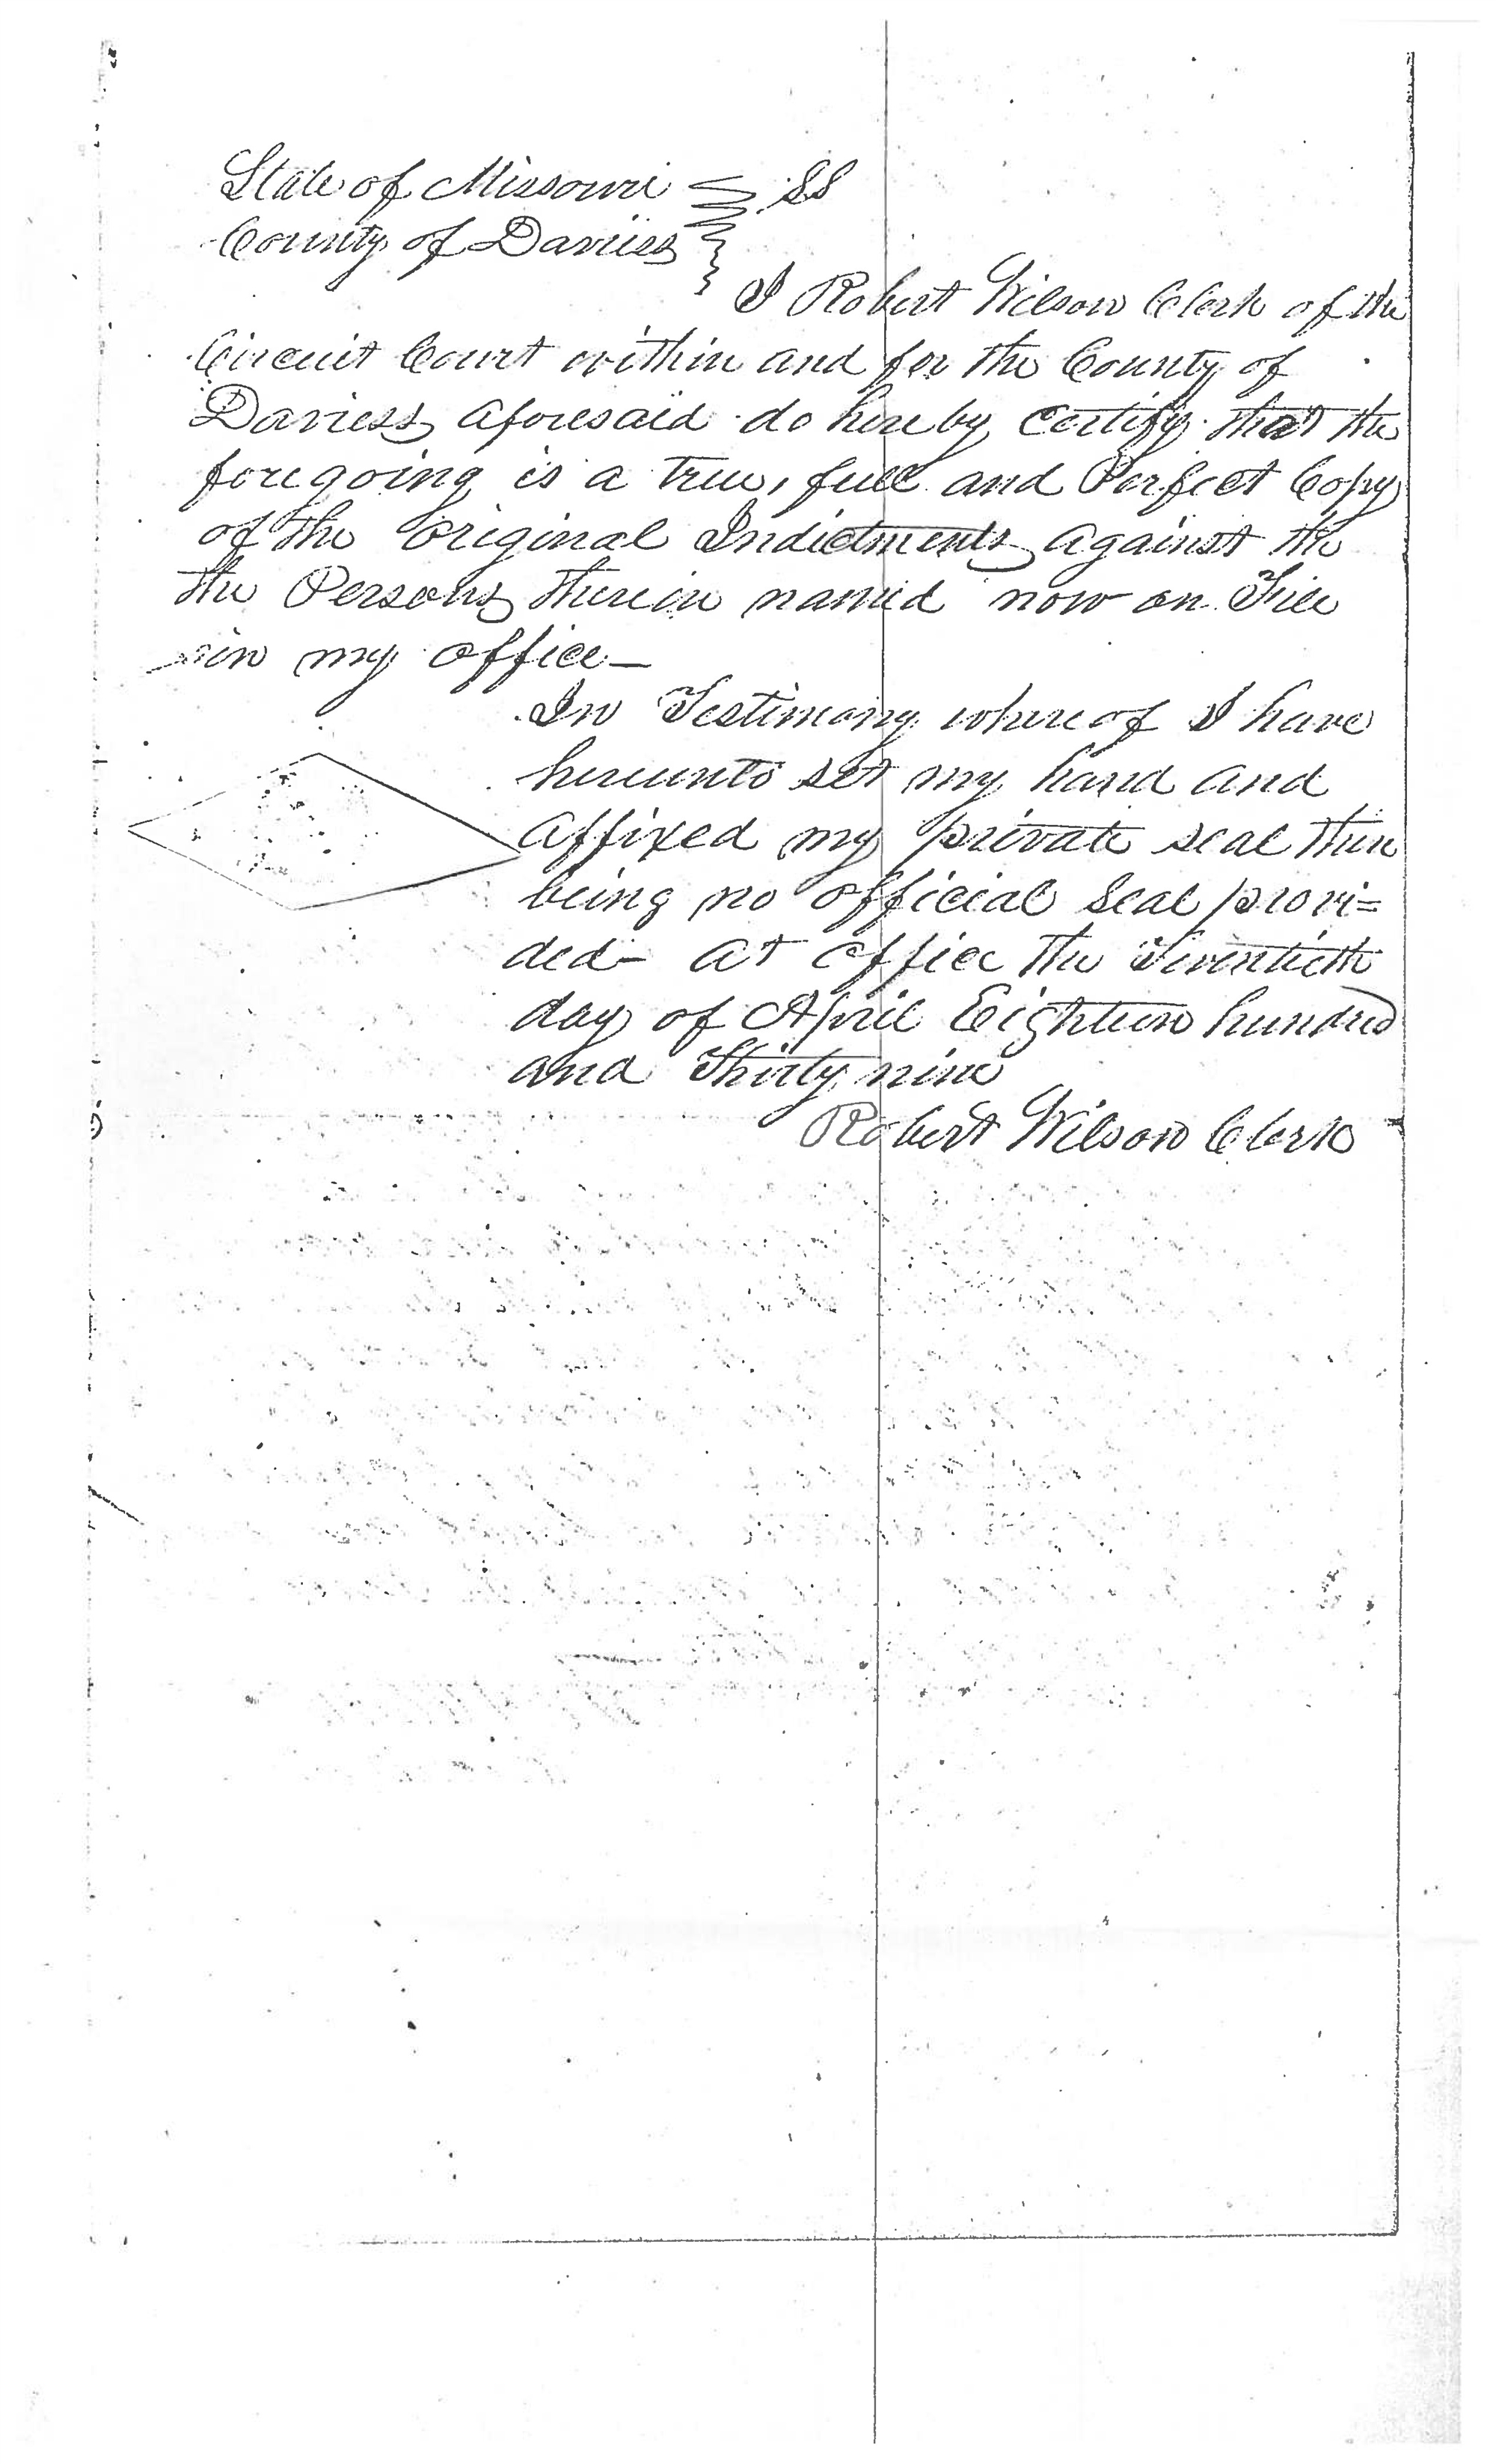 State of Missouri } SS
County of Daviess }
I Robert Wilson Clerk of the
Circuit Court within and for the County of
Daviess aforesaid do hereby certify that the
foregoing is a true, full and Perfect Copy
of the original Indictments against the
the Persons therein named now on File
in my office—
In Testimony whereof I have
hereunto set my hand and
affixed my private seal there
being no official seal provi=
ded— at office the Twentieth
day of April Eighteen hundred
and Thirty nine
Robert Wilson Clerk